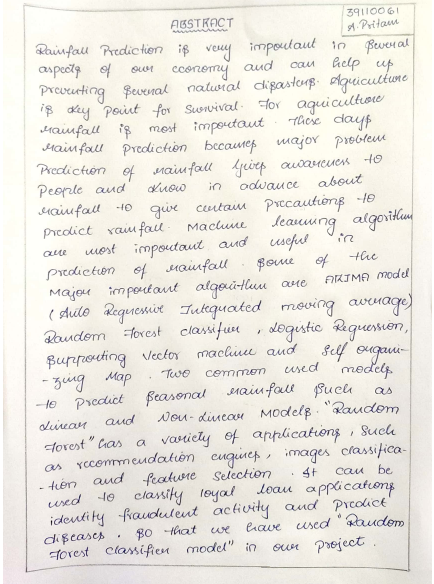 39110061
A. Pritam
ABSTRACT
Rainfall Prediction is very important in several
aspects of our economy and can help us
preventing several natural disasters. Agriculture
is key Point for Survival. For agriculture
rainfall is most important. These days
rainfall Prediction becomes major problem
Prediction of rainfall gives awareness to
People and know in advance about
rainfall to give certain precautions to
predict rainfall. Machine learning algorithm
are most important and useful in
prediction of rainfall. Some of the
Major important algorithm are ARIMA model
(Auto Regressive Integrated moving average)
Random Forest classifier, Logistic Regression,
Supporting Vector machine and Self organi-
-zing Map. Two common used models
to predict Seasonal rainfall such as
Linear and Non-Linear Models. "Random
Forest" has a variety of applications, such
as recommendation engines, images classifica-
-tion and feature selection. It can be
used to classify loyal loan applications
identity fraudulent activity and predict
diseases. So that we have used "Random
Forest classifier model" in our project.